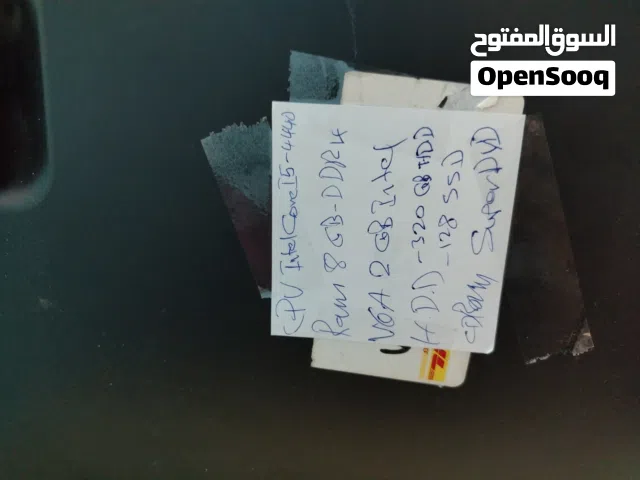 السوق المفتوح
OpenSooq
CPU Intel Core I5-4440
Ram 8 GB-DDR4
VGA 2 GB Intel
H.D.D -320 GB HDD
-128 SSD
Super DVD